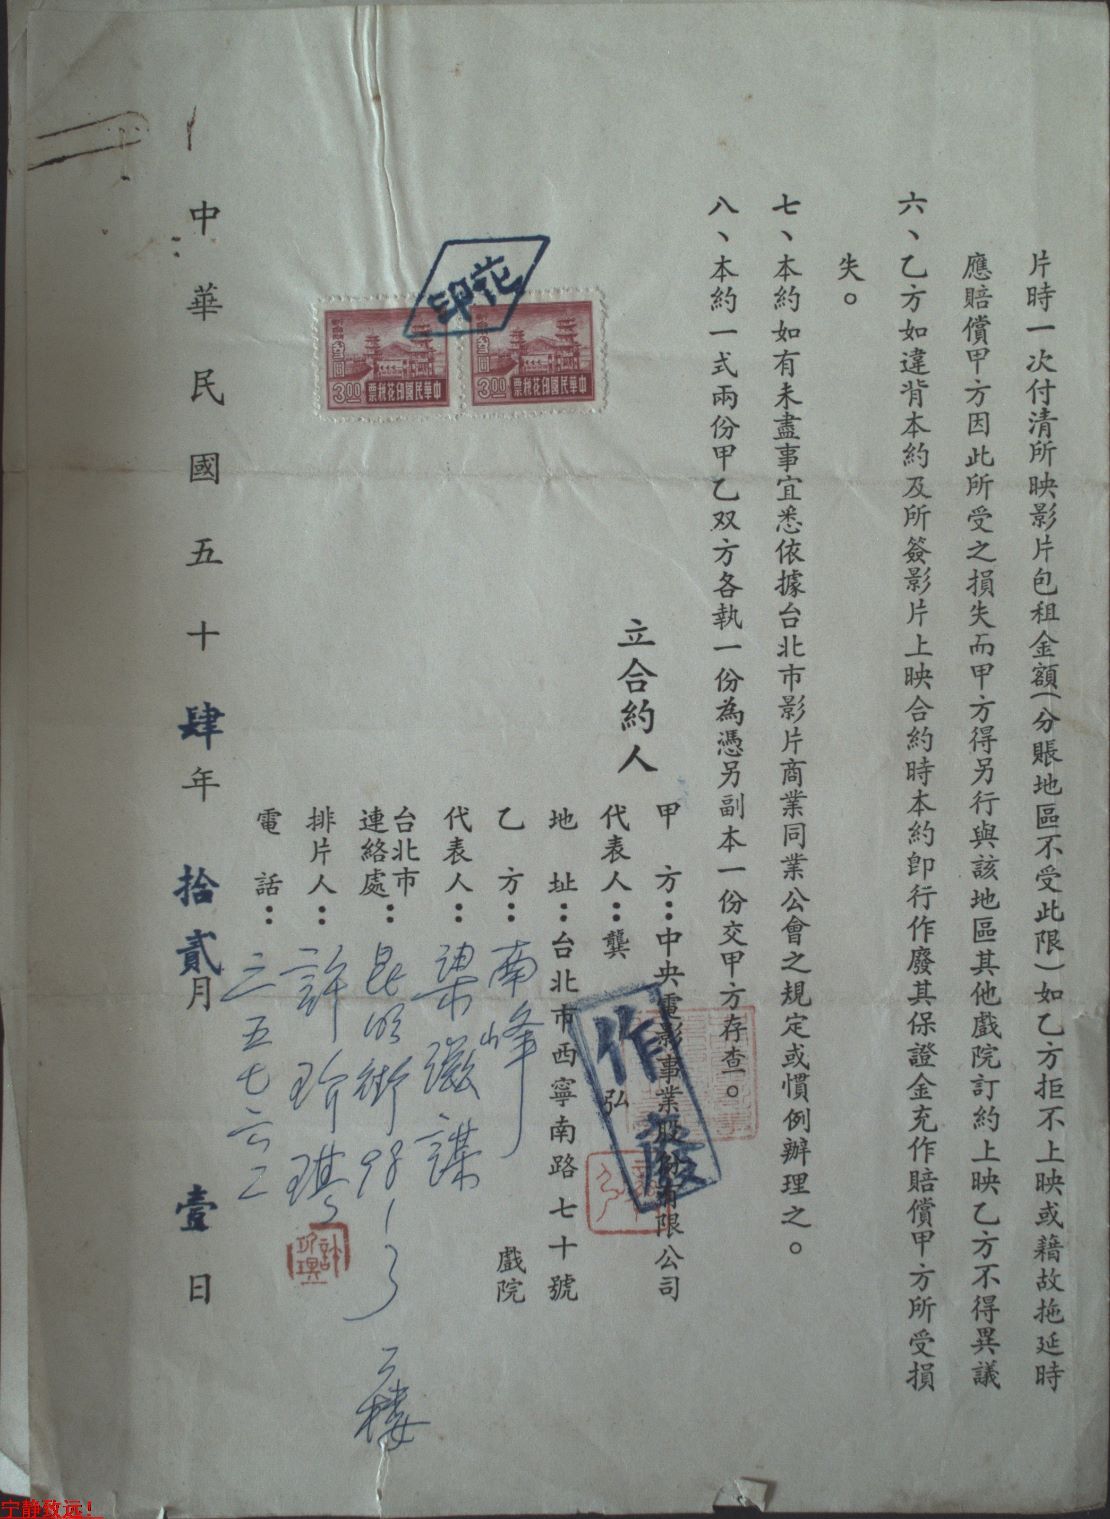 片時一次付清所映影片包租金額(分賬地區不受此限)如乙方拒不上映或藉故拖延時
應賠償甲方因此所受之損失而甲方得另行與該地區其他戲院訂約上映乙方不得異議
六、乙方如違背本約及所簽影片上映合約時本約卽行作廢其保證金充作賠償甲方所受損
失。
七、本約如有未盡事宜悉依據台北市影片商業同業公會之規定或慣例辦理之。
八、本約一式兩份甲乙双方各執一份為憑另副本一份交甲方存查。
立合約人
甲方:中央電影事業股份有限公司
代表人:龔弘
作廢
地址:台北市西寧南路七十號
乙方:南峰戲院
代表人:梁
台北市連絡處:昆明街98-1 3 二樓
排片人:許珍琪
電話:三五七六二
印花
中華民國印花稅票
3.00
中華民國印花稅票
3.00
中華民國五十肆年拾貳月壹日
宁静致远!